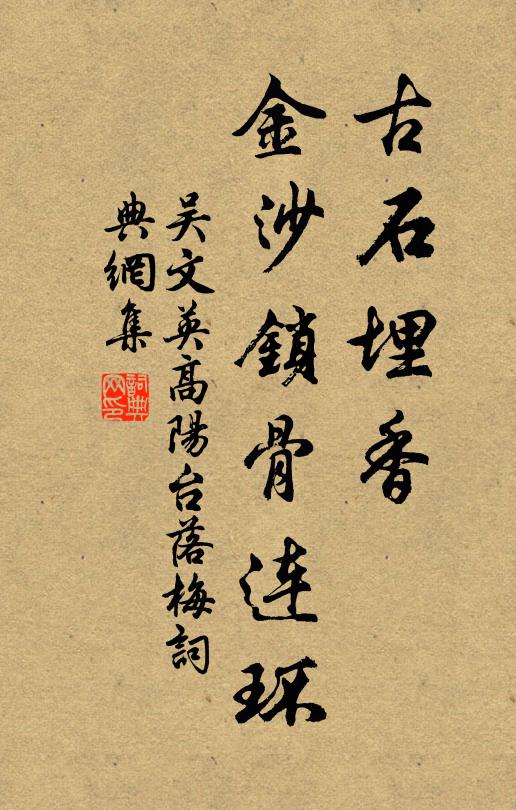 古石埋香
金沙鎖骨连环
吴文英高陽台落梅詞
典網集
詞典
网印